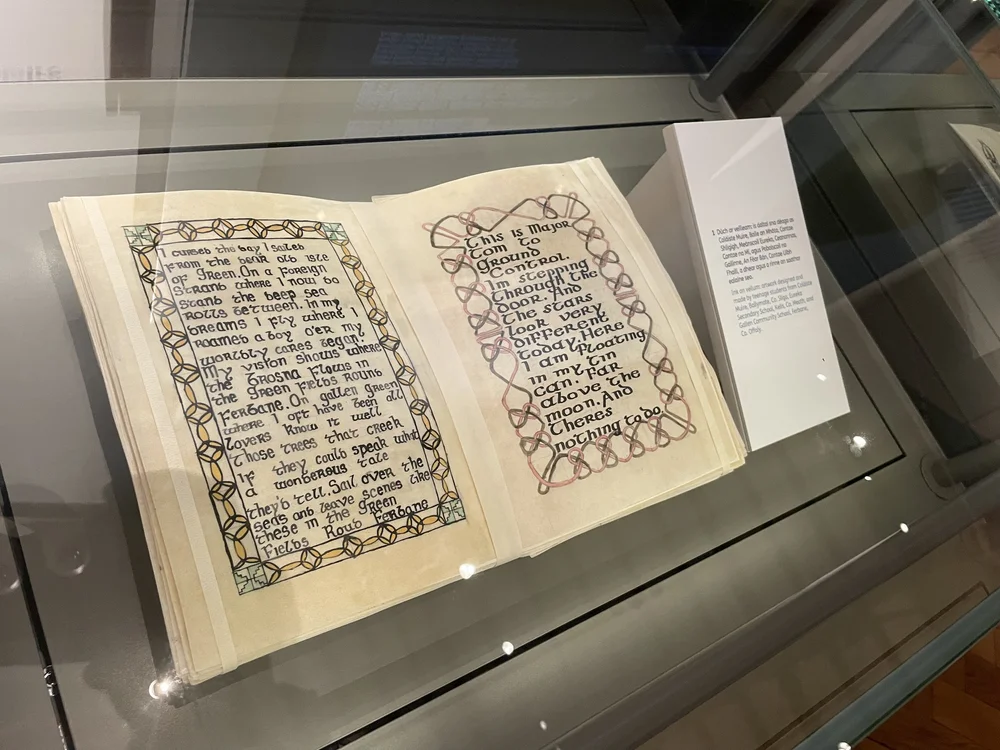 I cursed the day I sailed
from the dear old isle
of green. On a foreign
strand where I now do
stand the deep sea
rolls between. in my
dreams I fly where I
roamed a boy o'er my
worldly cares began.
My vision shows where
the Brosna flows in
the green fields round
Ferbane. On gallen green
where I oft have been all
lovers know it well
those trees that creek
if they could speak what
a wonderous tale
they'd tell. Sail over the
seas and leave scenes like
these in the green
fields Roud Ferbane
This is Major
Tom to
Ground
Control.
Im stepping
through the
door. And
the stars
look very
different
today. Here
I am floating
in my tin
can. Far
above the
moon. And
theres
nothing to do.
1 Dúch ar veilleam: is
Coláiste Muire, Baile an Mhóta, Contae
Shligigh, Meánscoil Eureka, Ceanannas,
Contae na Mí, agus Pobalscoil na
Gaillíne, An Féar Bán, Contae Uíbh
Fhailí, a dhear agus a rinne an saothar
ealaíne seo.
Ink on vellum: artwork designed and
made by teenage students from Coláiste
Muire, Ballymote, Co. Sligo, Eureka
Secondary School, Kells, Co. Meath, and
Gallen Community School, Ferbane,
Co. Offaly.